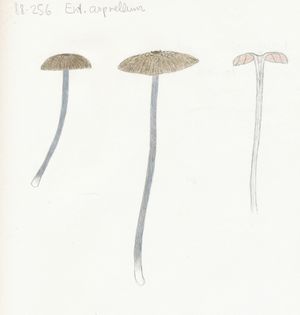 88-256 Ent. asprellum